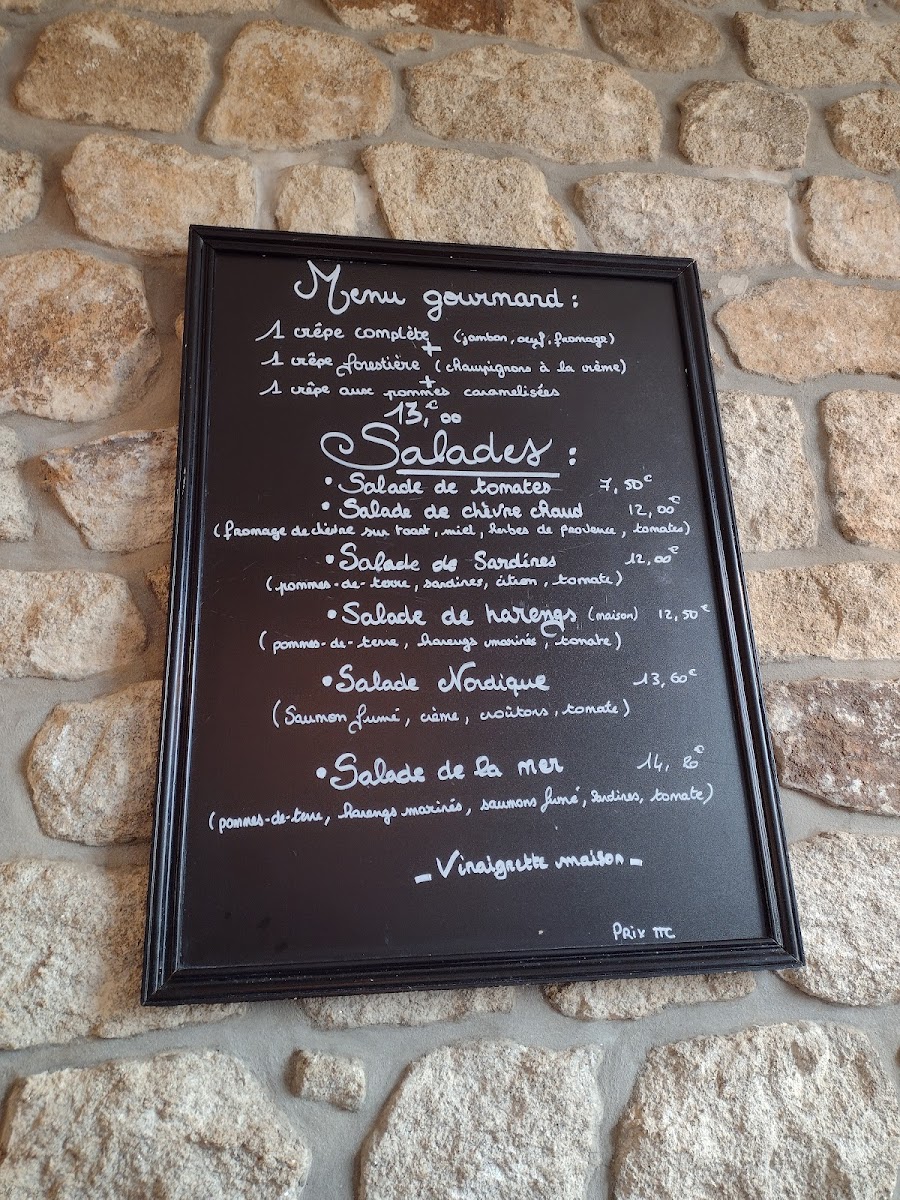 Menu gourmand :
1 crêpe complète (jambon, œuf, fromage)
+
1 crêpe forestière (champignons à la crème)
+
1 crêpe aux pommes caramelisées
13,€00
Salades :
• Salade de tomates 7,50€
• Salade de chèvre chaud 12,00€
(fromage de chèvre sur toast, miel, herbes de provence, tomates)
• Salade de Sardines 12,00€
(pommes-de-terre, sardines, citron, tomate)
• Salade de harengs (maison) 12,50€
(pommes-de-terre, harengs marinés, tomate)
• Salade Nordique 13,60€
(Saumon fumé, crème, croûtons, tomate)
• Salade de la mer 14,80€
(pommes-de-terre, harengs marinés, saumons fumé, Sardines, tomate)
- Vinaigrette maison -
Prix TTC